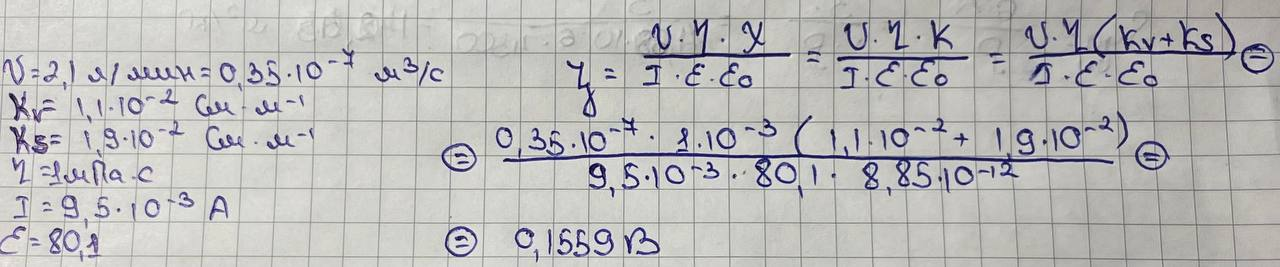 V=2,1 мл/мин=0,35·10⁻⁷ м³/с
Kv= 1,1·10⁻² См·м⁻¹
Ks= 1,9·10⁻² См·м⁻¹
η=1мПа·с
I=9,5·10⁻³ А
ε=80,1
ζ = V·η·χ / I·ε·ε₀ = V·η·K / I·ε·ε₀ = V·η(Kv+Ks) / I·ε·ε₀ ⊜
⊜ 0,35·10⁻⁷·1·10⁻³(1,1·10⁻²+1,9·10⁻²) / 9,5·10⁻³·80,1·8,85·10⁻¹² ⊜
⊜ 0,1559 В